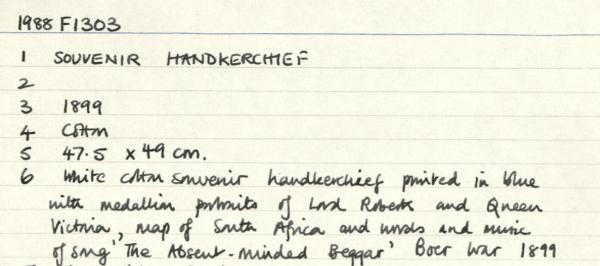 1988 F1303
1 SOUVENIR HANDKERCHIEF
2
3 1899
4 Cotton
5 47.5 x 49 cm.
6 White cotton souvenir handkerchief printed in blue
with medallion portraits of Lord Roberts and Queen
Victoria, map of South Africa and words and music
of song 'The Absent-minded Beggar' Boer War 1899